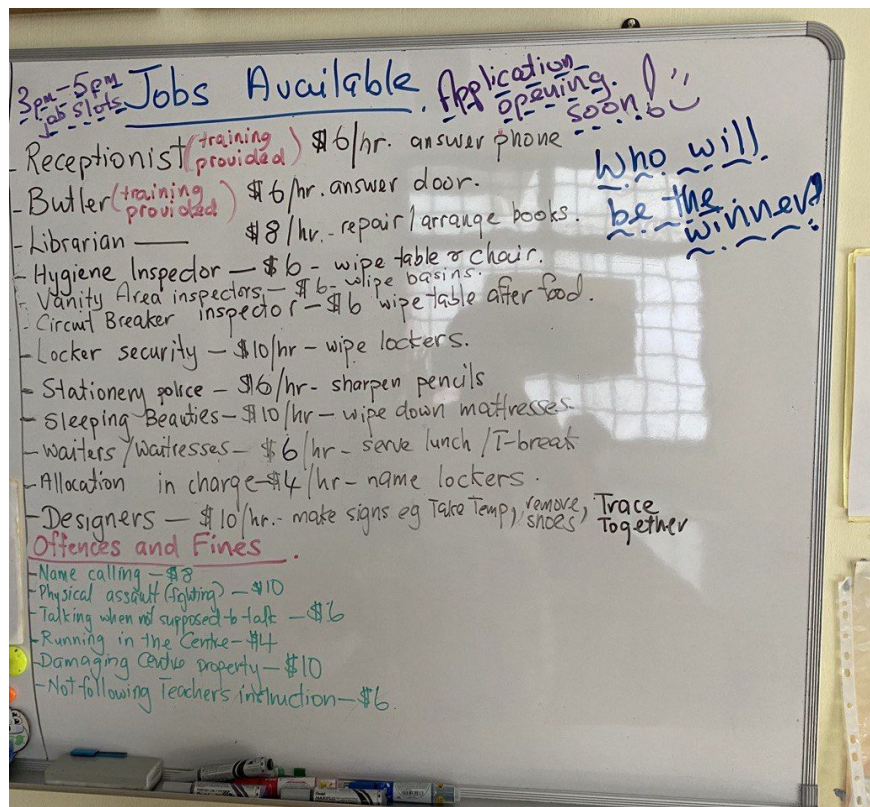 3pm-5pm
Job slots
Jobs Available.
Application
opening.
soon!
Who will
be the
winner?
- Receptionist (training provided) $6/hr. answer phone
- Butler (training provided) $6/hr. answer door.
- Librarian — $8/hr. - repair/arrange books.
- Hygiene Inspector - $6 - wipe table & chair.
- Vanity Area inspectors - $6 - wipe basins.
- Circuit Breaker inspector - $6 wipe table after food.
- Locker security - $10/hr - wipe lockers.
- Stationery police - $6/hr - sharpen pencils
- Sleeping Beauties - $10/hr - wipe down mattresses
- Waiters/Waitresses - $6/hr - serve lunch/T-break
- Allocation in charge - $4/hr - name lockers.
- Designers - $10/hr. - make signs eg Take Temp, remove shoes, Trace Together
Offences and Fines.
- Name calling - $8
- Physical assault (fighting) - $10
- Talking when not supposed to talk - $6
- Running in the Centre - $4
- Damaging Centre property - $10
- Not following Teachers instruction - $6.